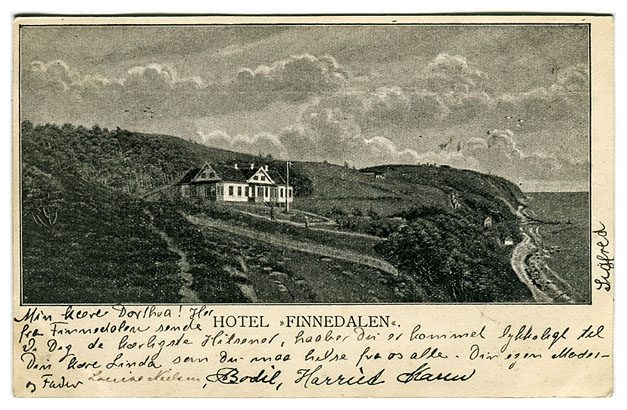 Min kære Dorthea! Her
fra Finnedalen sende
HOTEL »FINNEDALEN«.
Dig de kærligste Hilsener, haaber du er kommet lykkeligt til
Din kære Linda som du maa hilse fra os alle. Din egen Moder-
og Fader Louise Nielsen, Bodil, Harriet Karen
Sigfred